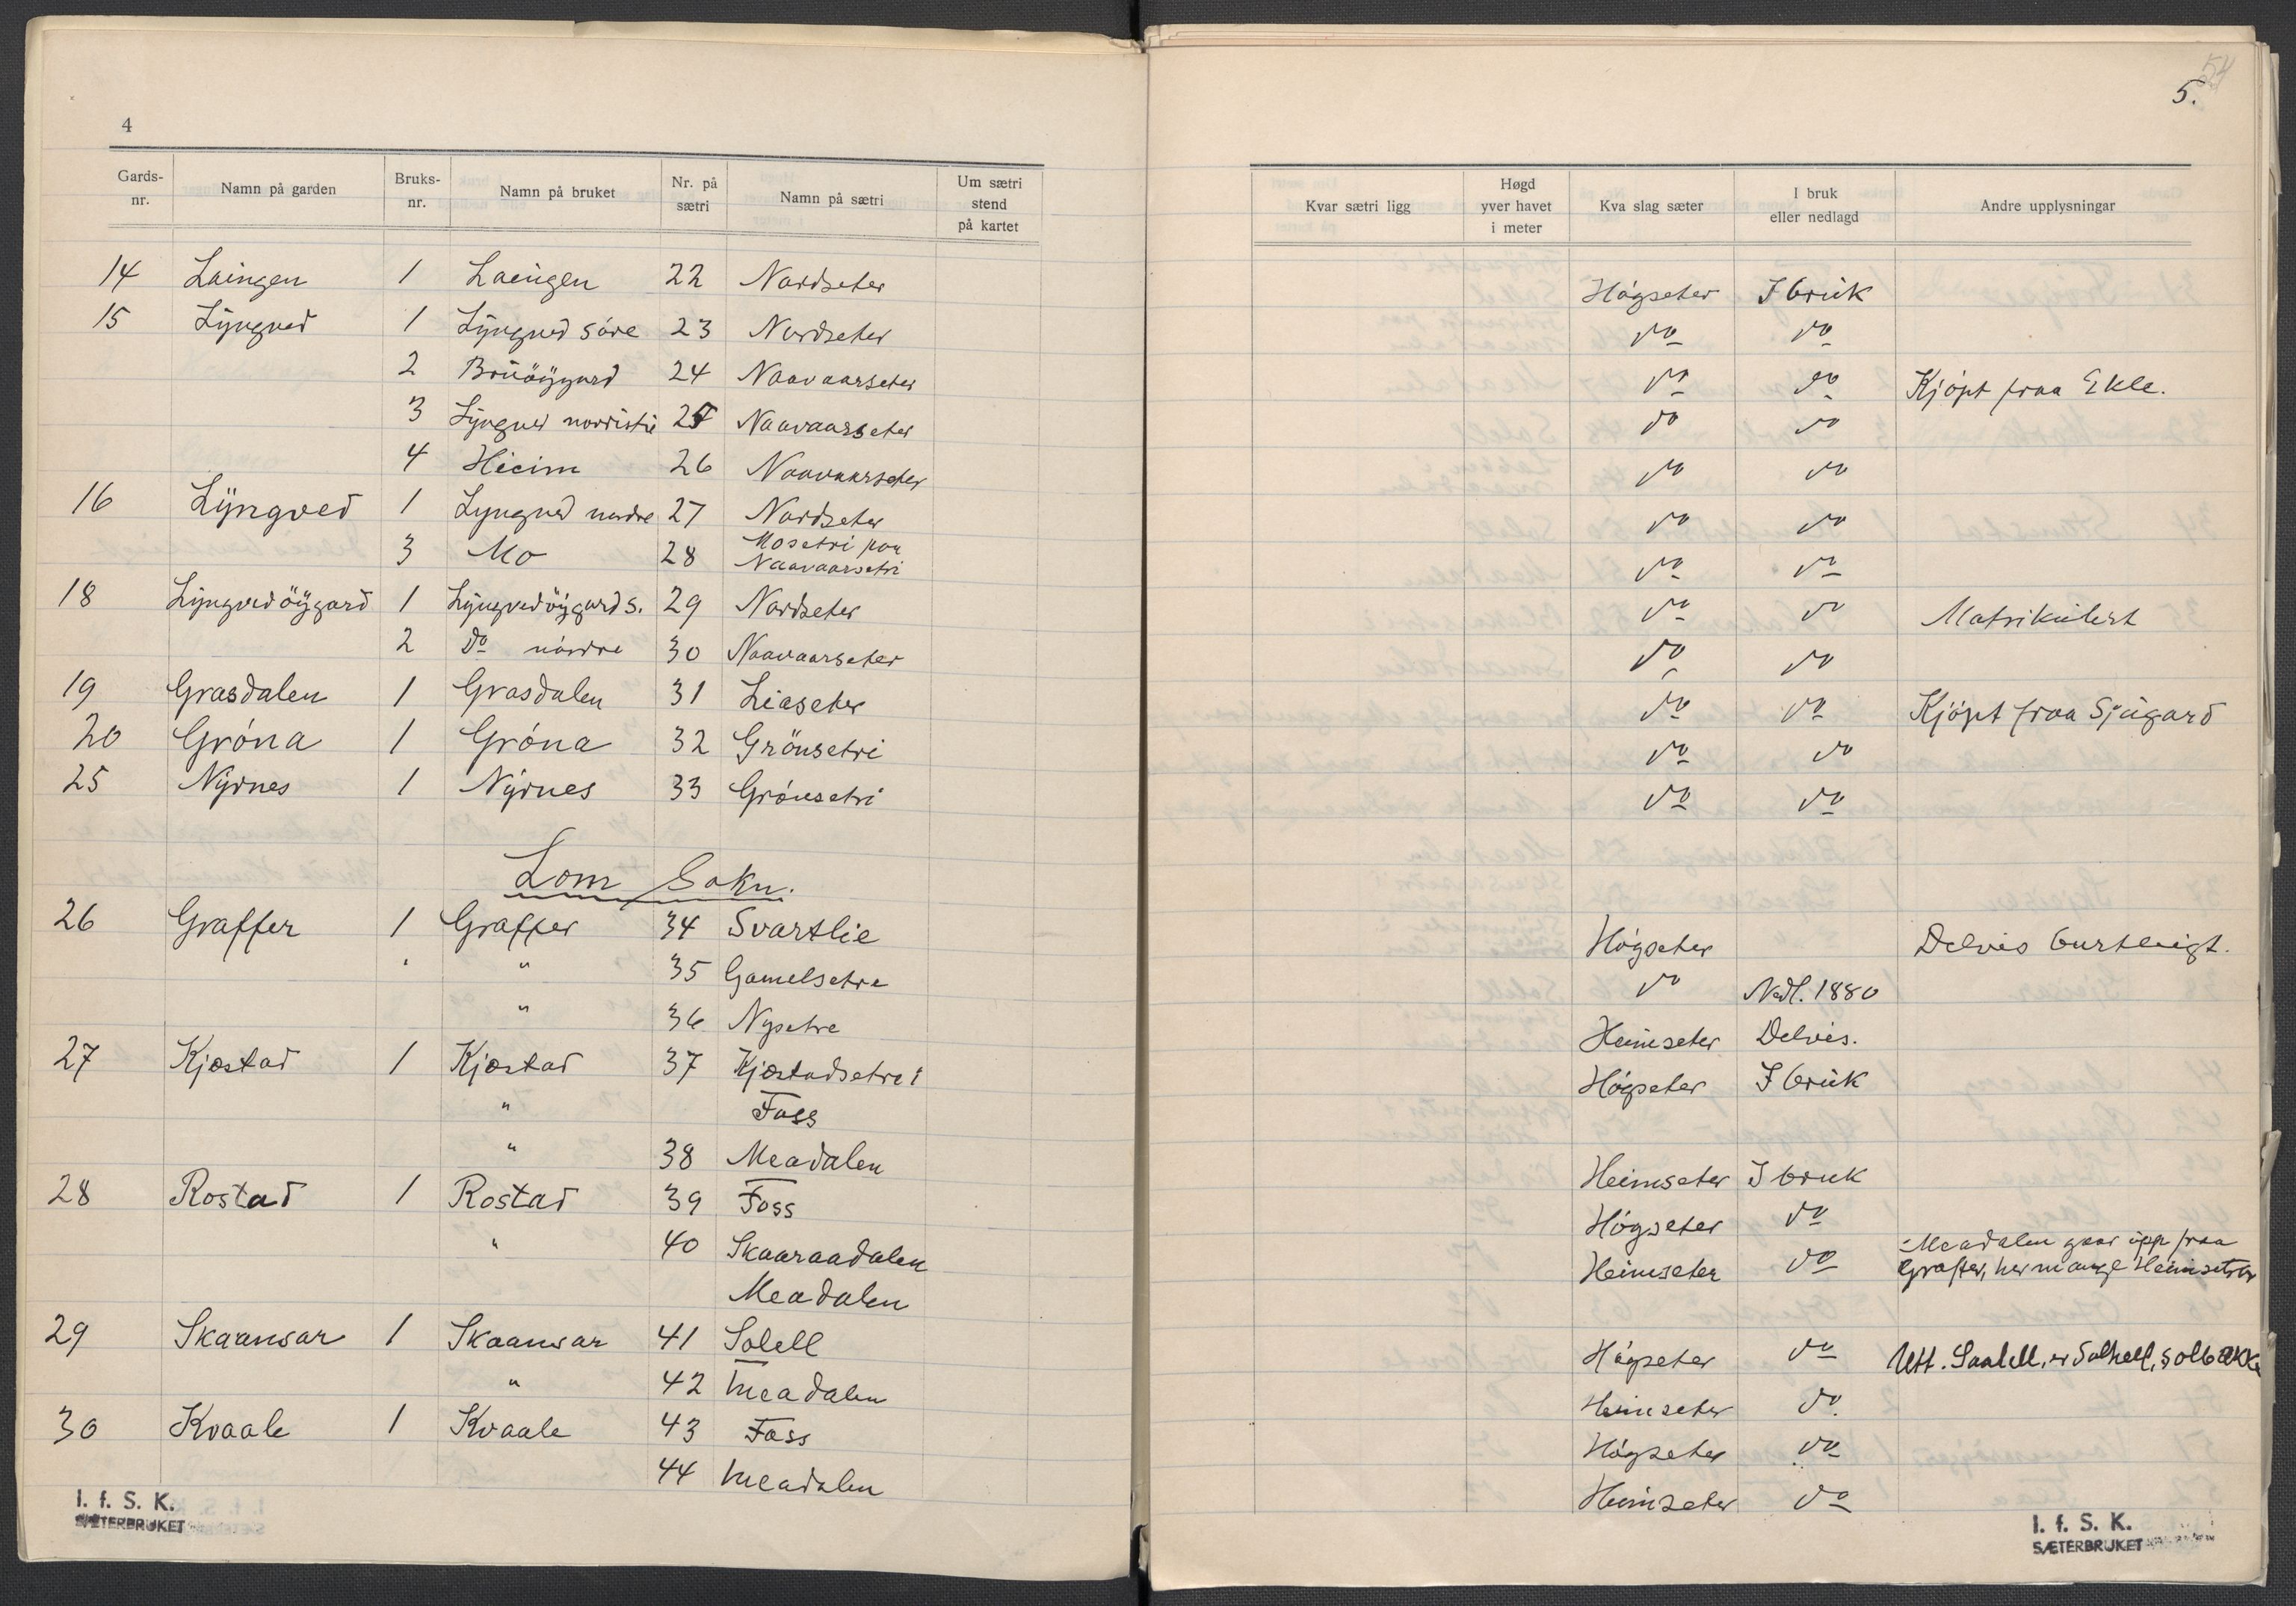 4
Gards-nr. Namn på garden Bruks-nr. Namn på bruket Nr. på sætri Namn på sætri Um sætri stend på kartet
14 Laingen 1 Laingen 22 Nordseter
15 Lyngved 1 Lyngved søre 23 Nordseter
2 Bruøygard 24 Naavaarseter
3 Lyngved 25 Naavaarseter
4 26 Naavaarseter
16 Lyngved 1 Lyngved nordre 27 Nordseter
3 Mo 28 Mosetri paa Naavaarsetri
18 Lyngvedøygard 1 Lyngvedøygard s. 29 Nordseter
2 do nordre 30 Naavaarseter
19 Grasdalen 1 Grasdalen 31 Liaseter
20 Gróna 1 Gróna 32 Grönsetri
25 Nyrnes 1 Nyrnes 33 Grónsetri
Lom Sokn.
26 Graffer 1 Graffer 34 Svartlie
" " 35 Gamelsetre
" 36 Nysetre
27 Kjæstad 1 Kjæstad 37 Kjæstadsetre i
" Foss
" 38 Meadalen
28 Rostad 1 Rostad 39 Foss
" 40 Skaaraadalen
Meadalen
29 Skaansar 1 Skaansar 41 Solell
" 42 Meadalen
30 Kvaale 1 Kvaale 43 Foss
44 Meadalen
I. f. S. K.
SÆTERBRUKET
5.
Kvar sætri ligg Høgd yver havet i meter Kva slag sæter I bruk eller nedlagd Andre upplysningar
Högseter I bruk
do do
do do Kjöpt fraa Ekle.
do do
do do
do do
do do
do do Matrikulert
do do
do do Kjöpt fraa Sjugard
do do
do do
Högseter Delvis burtleigt.
do Nedl. 1880
Heimseter Delvis.
Högseter I bruk
Heimseter I bruk
Högseter do
Heimseter do Meadalen gaar upp fraa
Graffer, her mange Heimsetrar
Högseter do Utt. Saalell, er Solhell, solbakke
Heimseter do.
Högseter do
Heimseter do
I. f. S. K.
SÆTERBRUKET